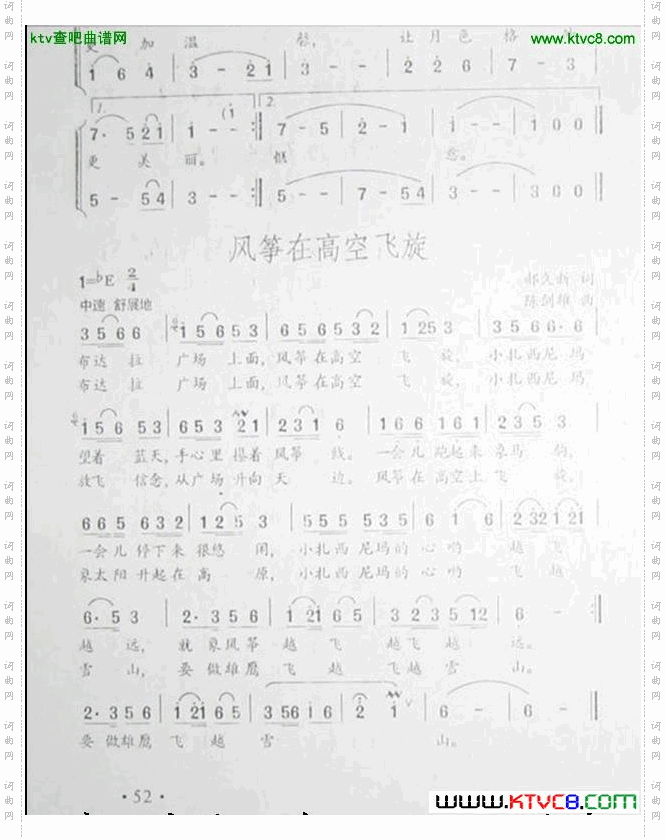 ktv查吧曲谱网
www.ktvc8.com
更加温馨，让月色格外
1 6 4 | 3 - 2 1 | 3 - - | 2 2 6 | 7 - 3
1. 2.
7· 5 2 1 | 1 - - :|| 7 - 5 | 2 - 1 | 1 - - | 1 0 0 ||
更美丽。惬意。
5 - 5 4 | 3 - - :|| 5 - - | 7 - 5 4 | 3 - - | 3 0 0 ||
风筝在高空飞旋
1=bE 2/4
郝久新 词
中速 舒展地
陈剑雄 曲
3 5 6 6 | 1 5 6 5 3 | 6 5 6 5 5 3 2 | 1 2 5 3 | 3 5 6 6· 6
布达拉广场上面，风筝在高空飞旋，小扎西尼玛
布达拉广场上面，风筝在高空飞旋，小扎西尼玛
1 5 6 5 | 6 5 3 2 1 | 2 3 1 6 | 1 6 6 1 6 1 | 2 3 5 3
望着蓝天，手心里攥着风筝线。一会儿跑起来象马驹，
放飞信念，从广场升向天边。风筝在高空上飞旋，
6 6 5 6 3 2 | 1 2 5 3 | 5 5 5 5 3 5 | 6 1 6 | 2 3 2 1 2 1
一会儿停下来很悠闲，小扎西尼玛的心哟越飞
象太阳升起在高原，小扎西尼玛的心哟越飞
6· 5 3 | 2· 3 5 6 | 1 2 1 6 5 | 3 2 3 5 1 2 | 6 - :||
越远，就象风筝越飞越飞越远。
雪山，要做雄鹰飞越飞越雪山。
2· 3 5 6 | 1 2 1 6 5 | 3 5 6 1 6 | 2 1 | 6 - | 6 - ||
要做雄鹰飞越雪山。
·52·
www.KTVC8.com
词曲网